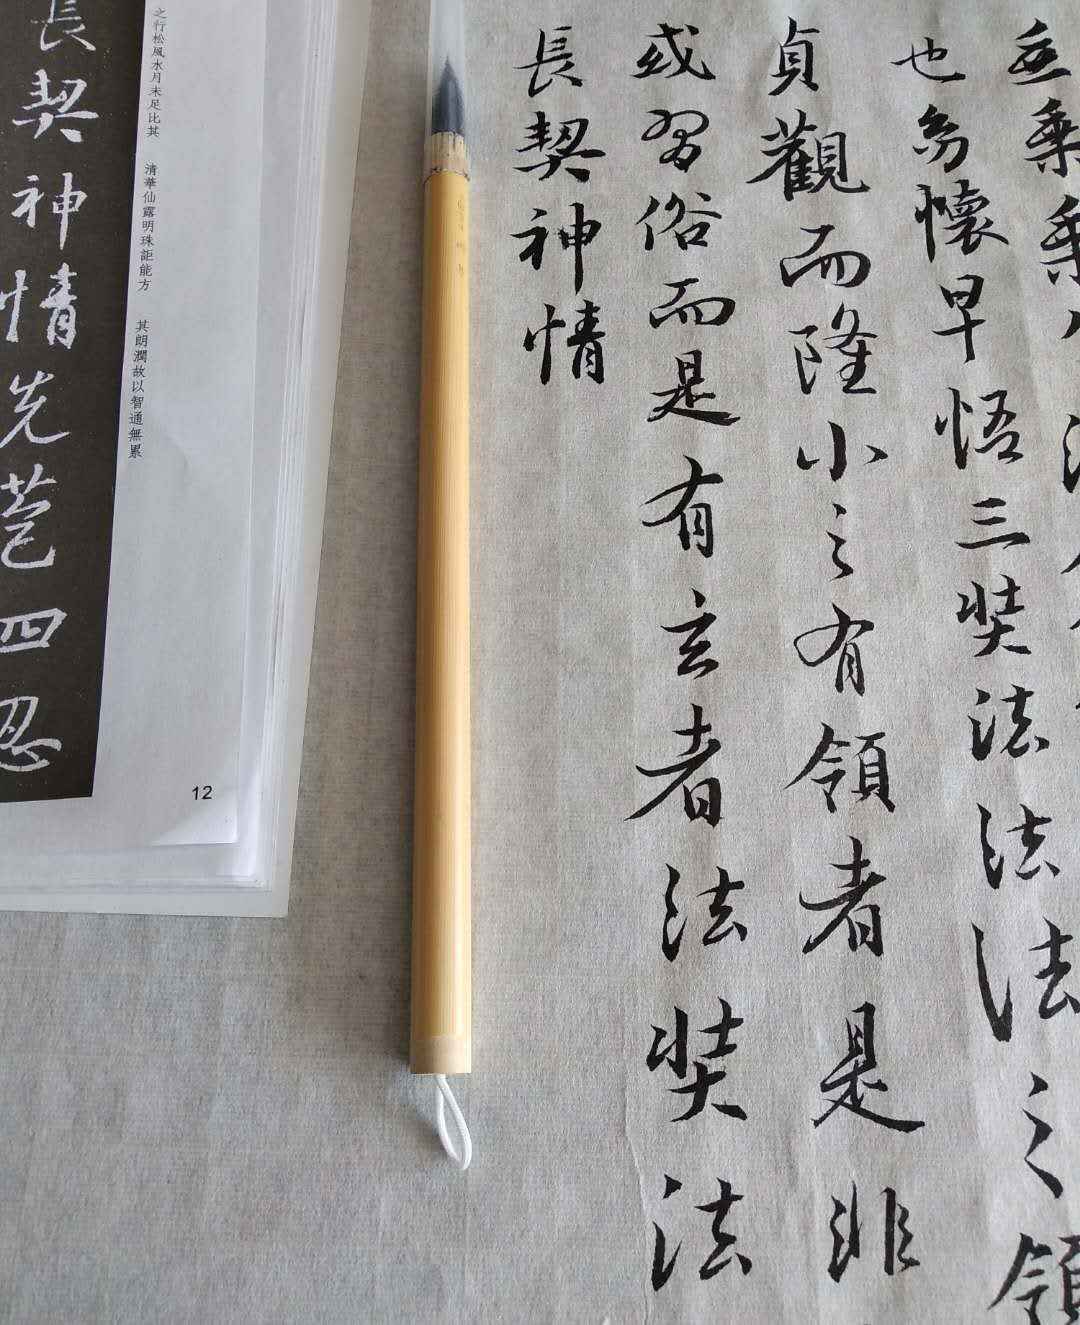 垂乘乘八法
也幼懷早悟三奘法法法之領
貞觀而隆小之有領者是非
或習俗而是有玄者法奘法
長契神情
之行松風水月未足比其
清華仙露明珠詎能方
其朗潤故以智通無累
長契神情先苞四忍
12